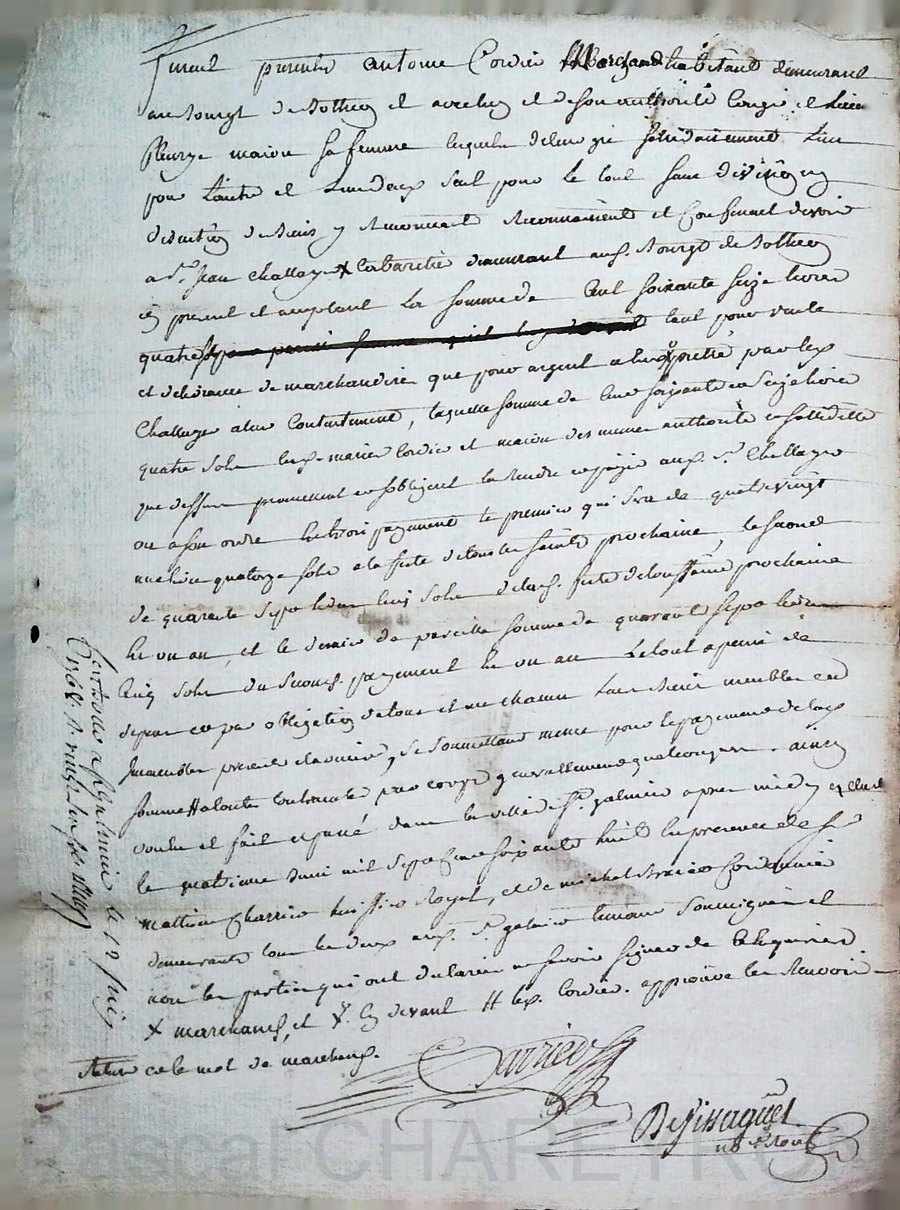 furent presents antoine Cordier Marchand habitant demeurant
au Bourgt de Bothéon et avec luy et de son authorité Congé et
fleurye mazou sa femme lesquels de leur gré solidairement L'un
pour L'autre et Lun deux seul pour Le tout sans division ny
discution de biens y renonceant reconnoissent et Confessent devoir
a Sr. Jean Challaye X Cabaretier demeurant aud. Bourgt de Bothéon
cy present et acceptant La somme de Cent soixante seize livres
quatre sols tant pour vente
et delivrance de marchandises que pour argent a eux preté par led.
Challaye a leur Contentement, laquelle somme de Cent soixante et seize livres
quatre sols lesd. mariés Cordier et mazou des memes authorité et solidité
que dessus promettent et s'obligent La rendre et payer aud. Sr. Challaye
ou a son ordre en trois payements le premier qui sera de quatre vingt
une livre quatorze sols a la fete de tous les saints prochaine, le second
de quarante sept livres Cinq sols de lad. fete de toussaint prochaine
en un an, et le dernier de pareille somme de quarante sept livres
Cinq sols du second payement en un an Le tout a peine de
depens et par obligation de tous et un chacun Leurs biens meubles et
Immeubles presents et avenir, se soumettant meme pour le payement de lad.
somme par corps generallement quelconques. ainsy
voulu et fait et passé dans la ville de St. galmier apres midy
le quatrieme Juin mil sept Cent soixante huit En presence de Sr
mathieu Charrier huissier Royal, et de michel Cordonnier
demeurants tous les deux aud. St. galmier temoins soussignés et
non les parties qui ont declaré ne savoir signer de ce enquises
X marchand, et Cy devant H led. Cordier. approuvé les renvois
rature et le mot de marchand.
Charrier
Desinaguet
Controllé a St galmier le 12 Juin
1768.
Pascal CHAREYRON